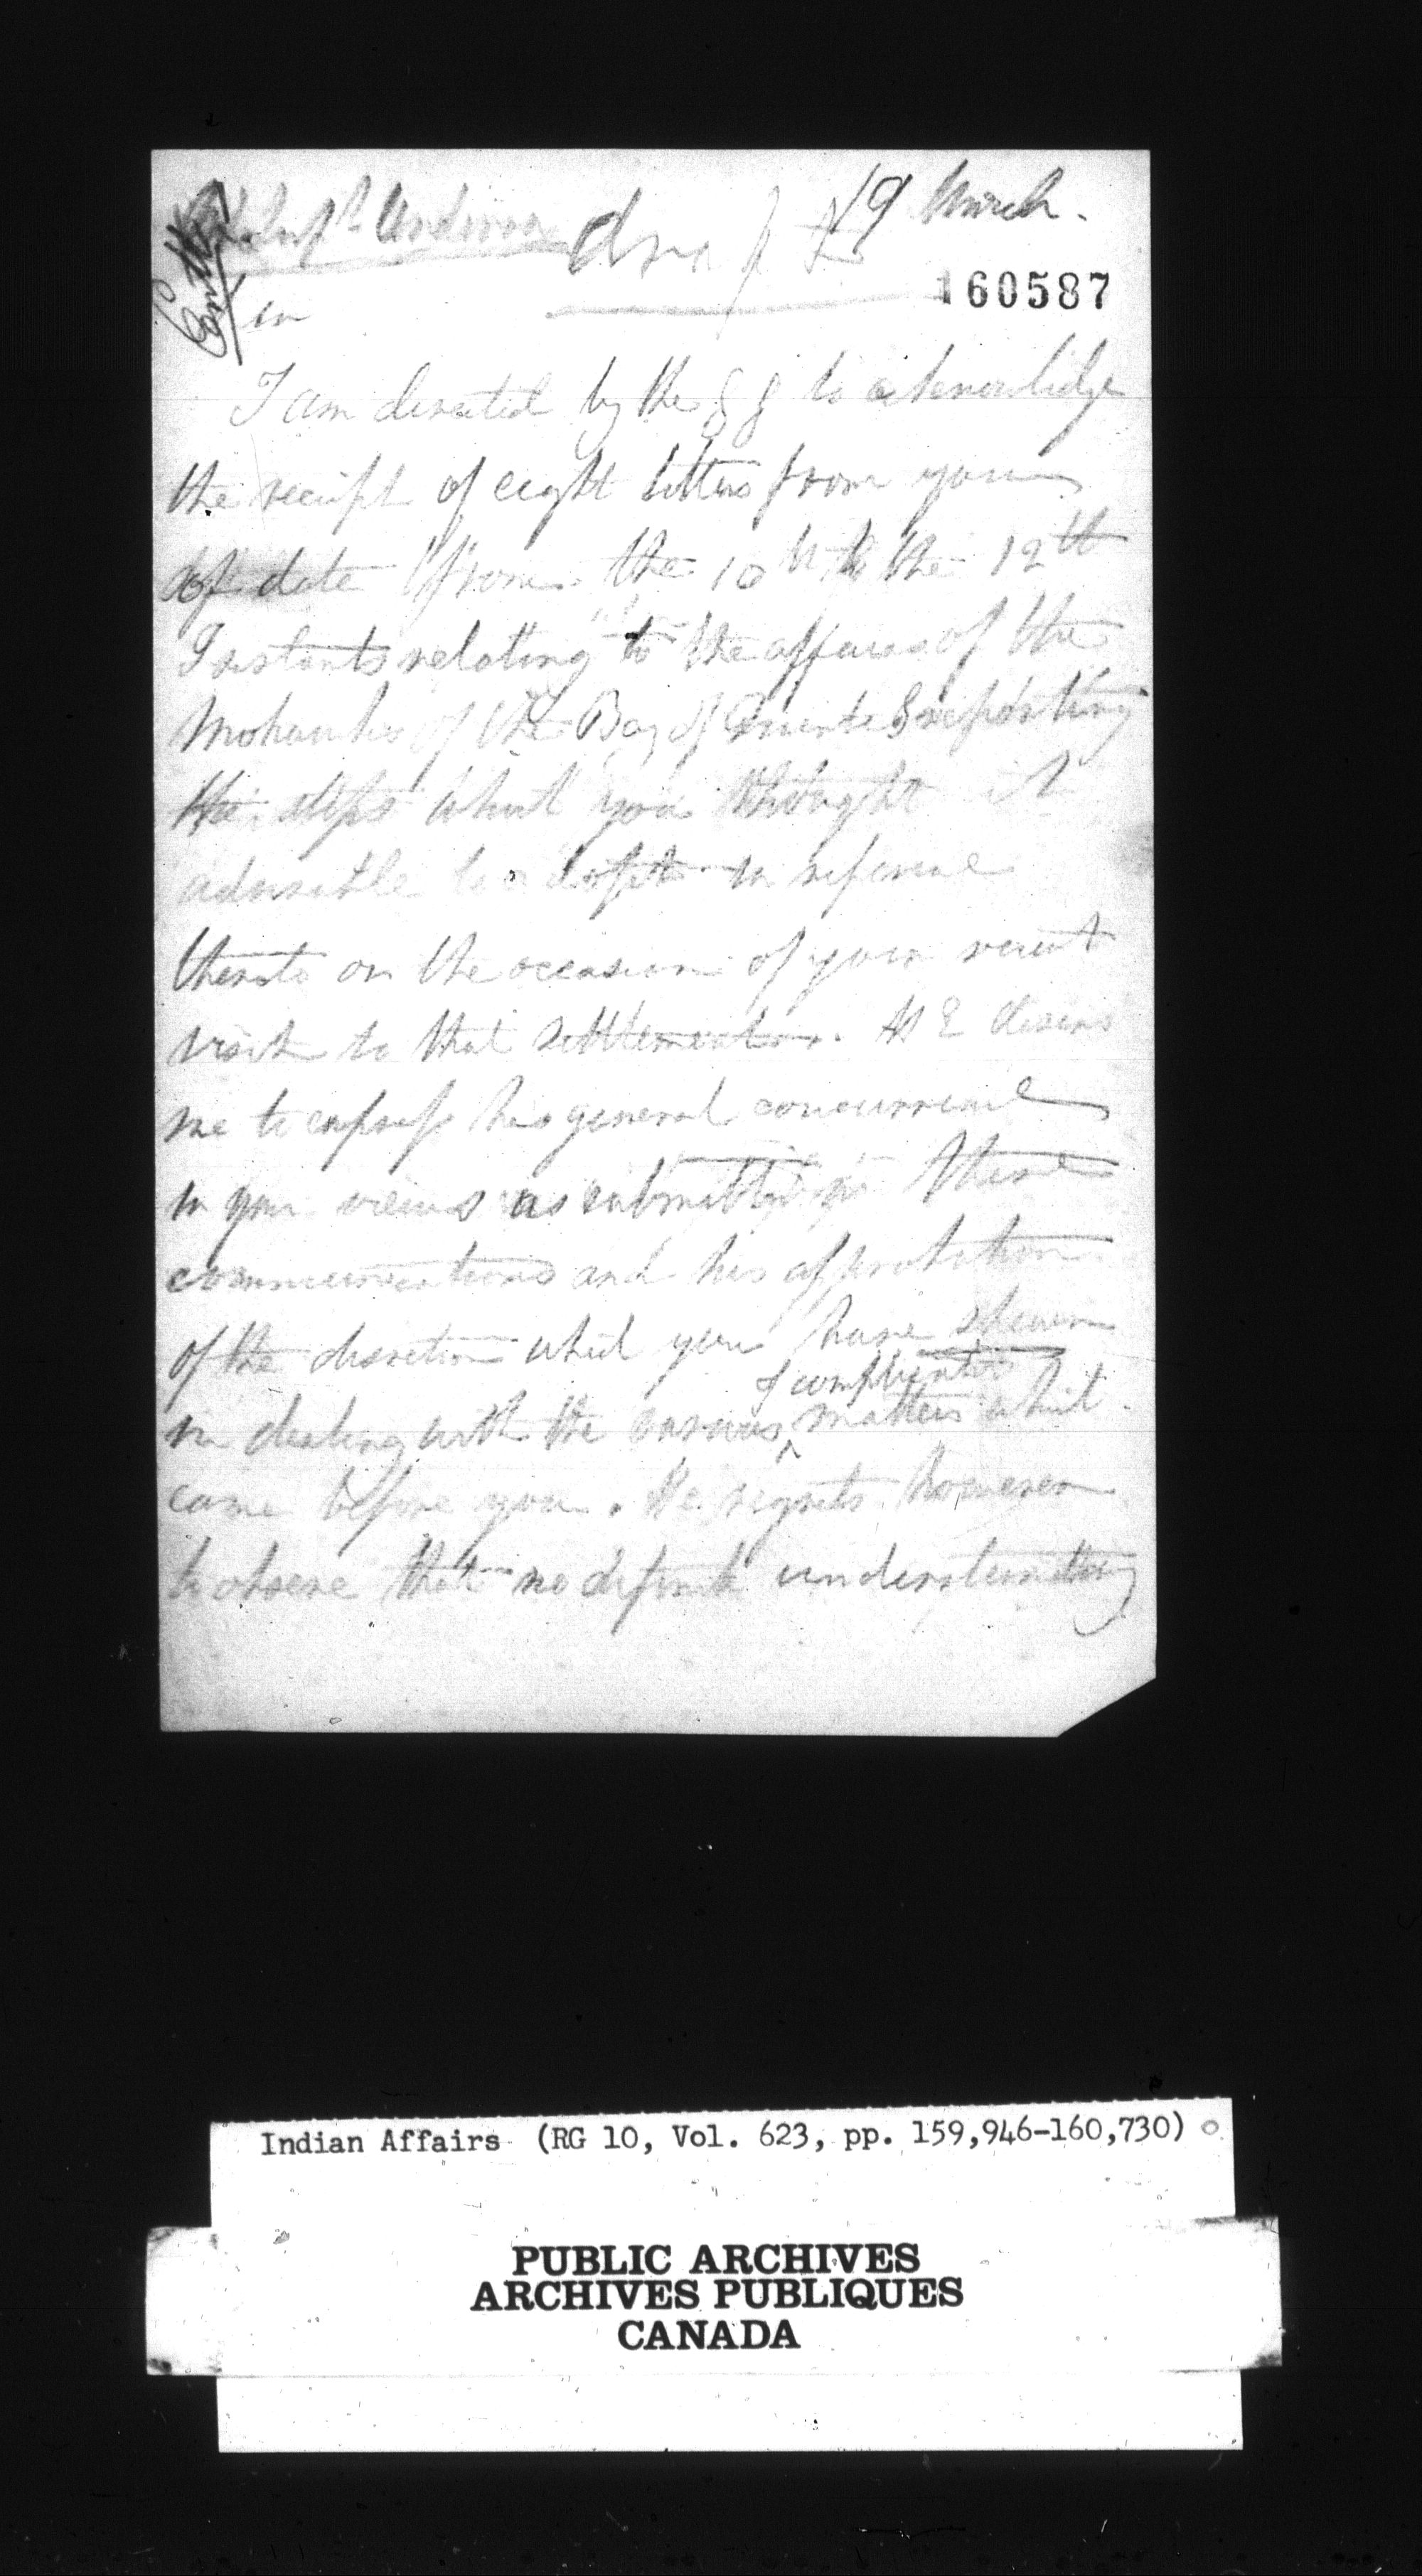 Supt Anderson draft 19 March.
160587
Sir
I am directed by the G G to acknowledge
the receipt of eight letters from you
of date from the 10th to the 12th
Instants relating to the affairs of the
Mohawks of the Bay of Quinte & reporting
the steps which you thought it
advisable to adopt in reference
thereto on the occasion of your recent
visit to that settlement. H E desires
me to express his general concurrence
in your views as submitted in these
communications and his approbation
of the discretion which you have shewn
& complicated
in dealing with the various matters which
came before you. He regrets however
to observe that no definite understanding
Indian Affairs (RG 10, Vol. 623, pp. 159,946-160,730)
PUBLIC ARCHIVES
ARCHIVES PUBLIQUES
CANADA